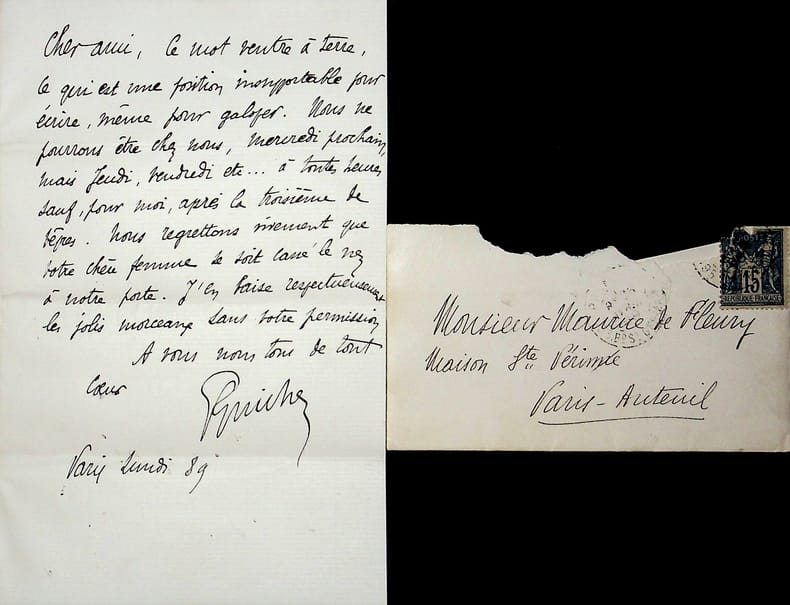 Cher ami, ce mot ventre à terre,
ce qui est une position insupportable pour
écrire, même pour galoper. Nous ne
pourrons être chez nous, mercredi prochain,
mais Jeudi, vendredi etc... à toutes heures
sauf, pour moi, après la troisième de
vêpres. Nous regrettons vivement que
votre chère femme se soit cassé le nez
à notre porte. J'en baise respectueusement
les jolis morceaux sans votre permission
A vous nous tous de tout
cœur
PGuiches
Paris Lundi 89
Monsieur Maurice de Fleury
Maison Ste Périne
Paris-Auteuil
15
REPUBLIQUE FRANÇAISE